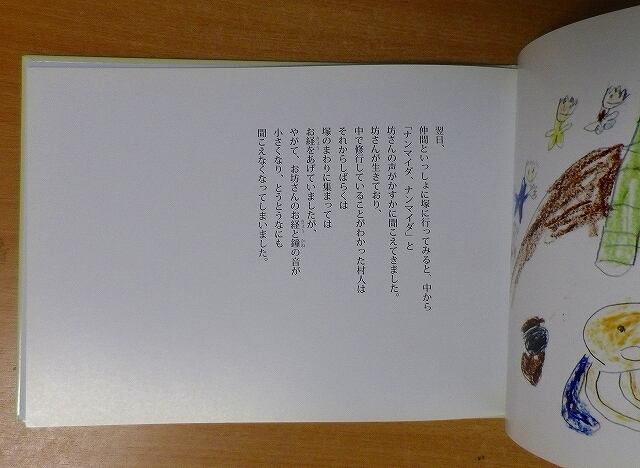 翌日、
仲間といっしょに塚に行ってみると、中から
「ナンマイダ、ナンマイダ」と
坊さんの声がかすかに聞こえてきました。
坊さんが生きており、
中で修行していることがわかった村人は
それからしばらくは
塚のまわりに集まっては
お経をあげていましたが、
やがて、お坊さんのお経と鐘の音が
小さくなり、とうとうなにも
聞こえなくなってしまいました。